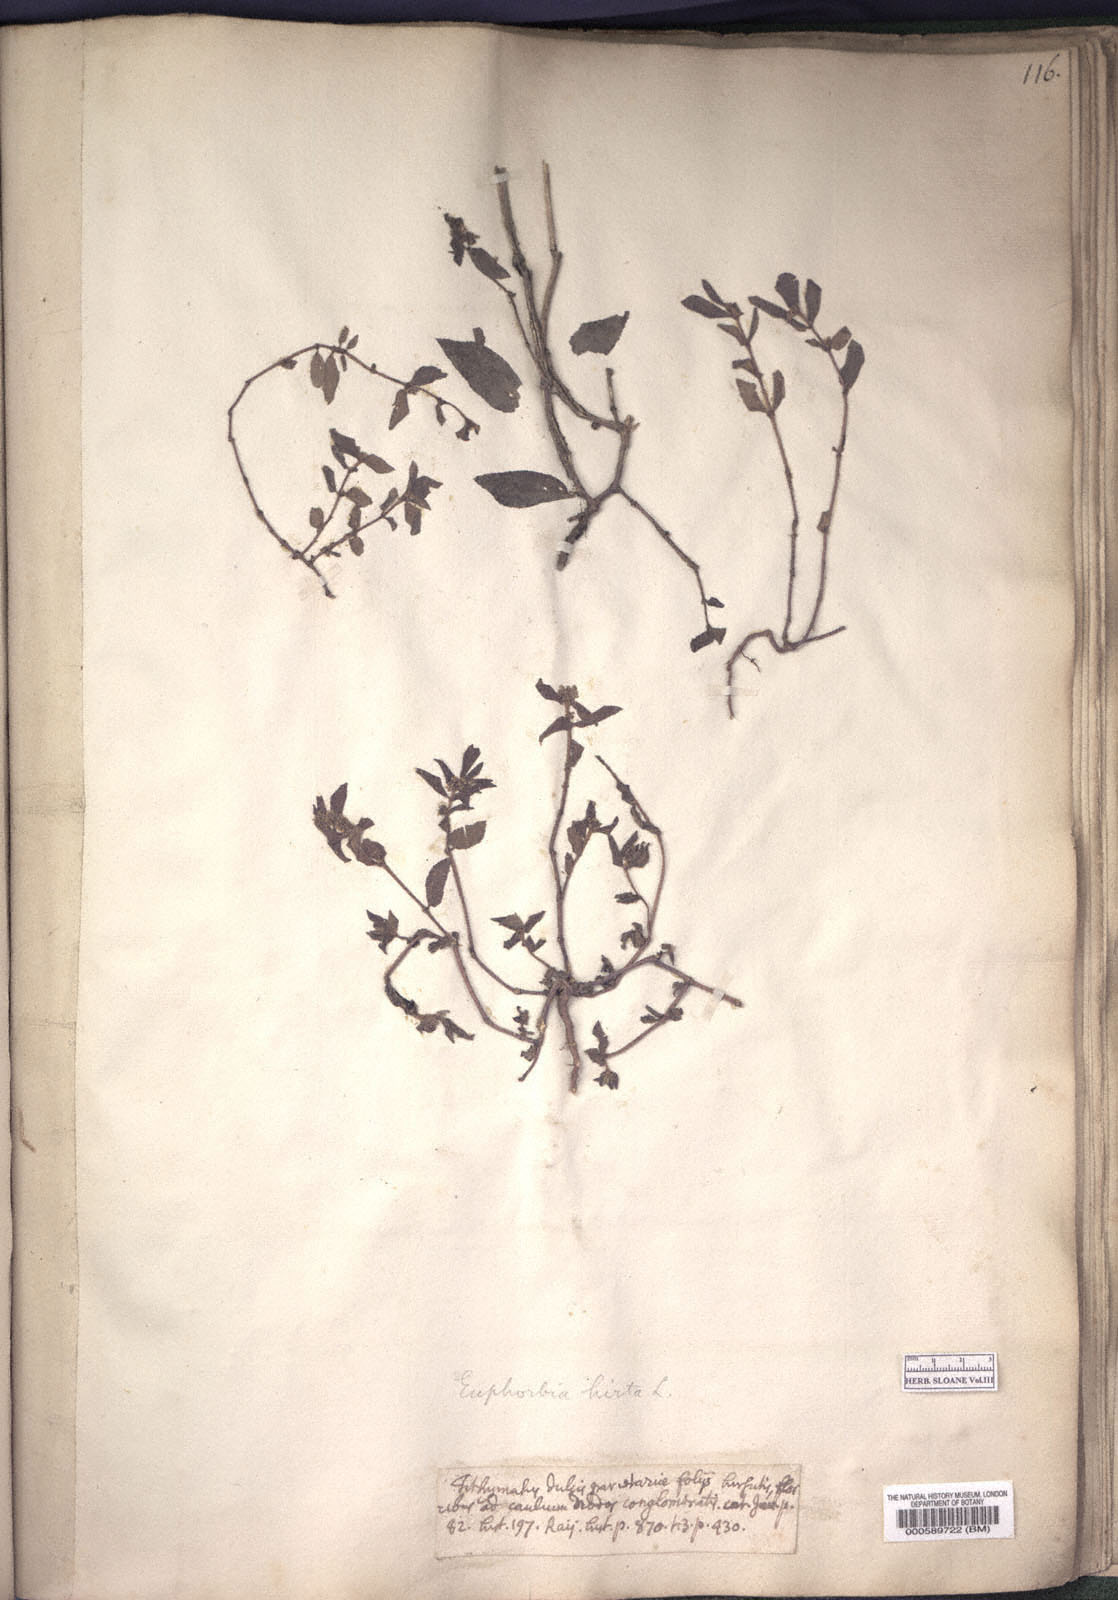 116.
Euphorbia hirta L.
HERB. SLOANE Vol.III
Tithymalus dulcis parietariæ folijs hirsutis, flo
ribus ad caulium nodos conglomeratis. cat. Jam. p.
82. hist. 197. Raij. hist. p. 870. t.3. p. 430.
THE NATURAL HISTORY MUSEUM, LONDON
DEPARTMENT OF BOTANY
000589722 (BM)